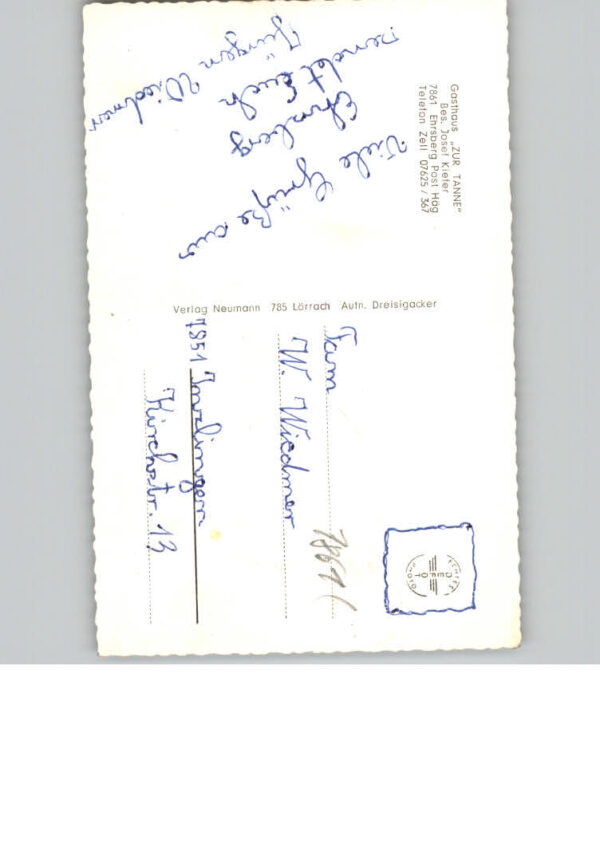 Gasthaus „ZUR TANNE"
Bes. Josef Kiefer
7861 Ehrsberg Post Häg
Telefon Zell 07625/367
Viele Grüße aus
Ehrsberg
sendet Euch
Jürgen Wiedmer
Verlag Neumann 785 Lörrach Autn. Dreisigacker
Fam
W. Wiedmer
7851 Inzlingen
Kirchstr. 13